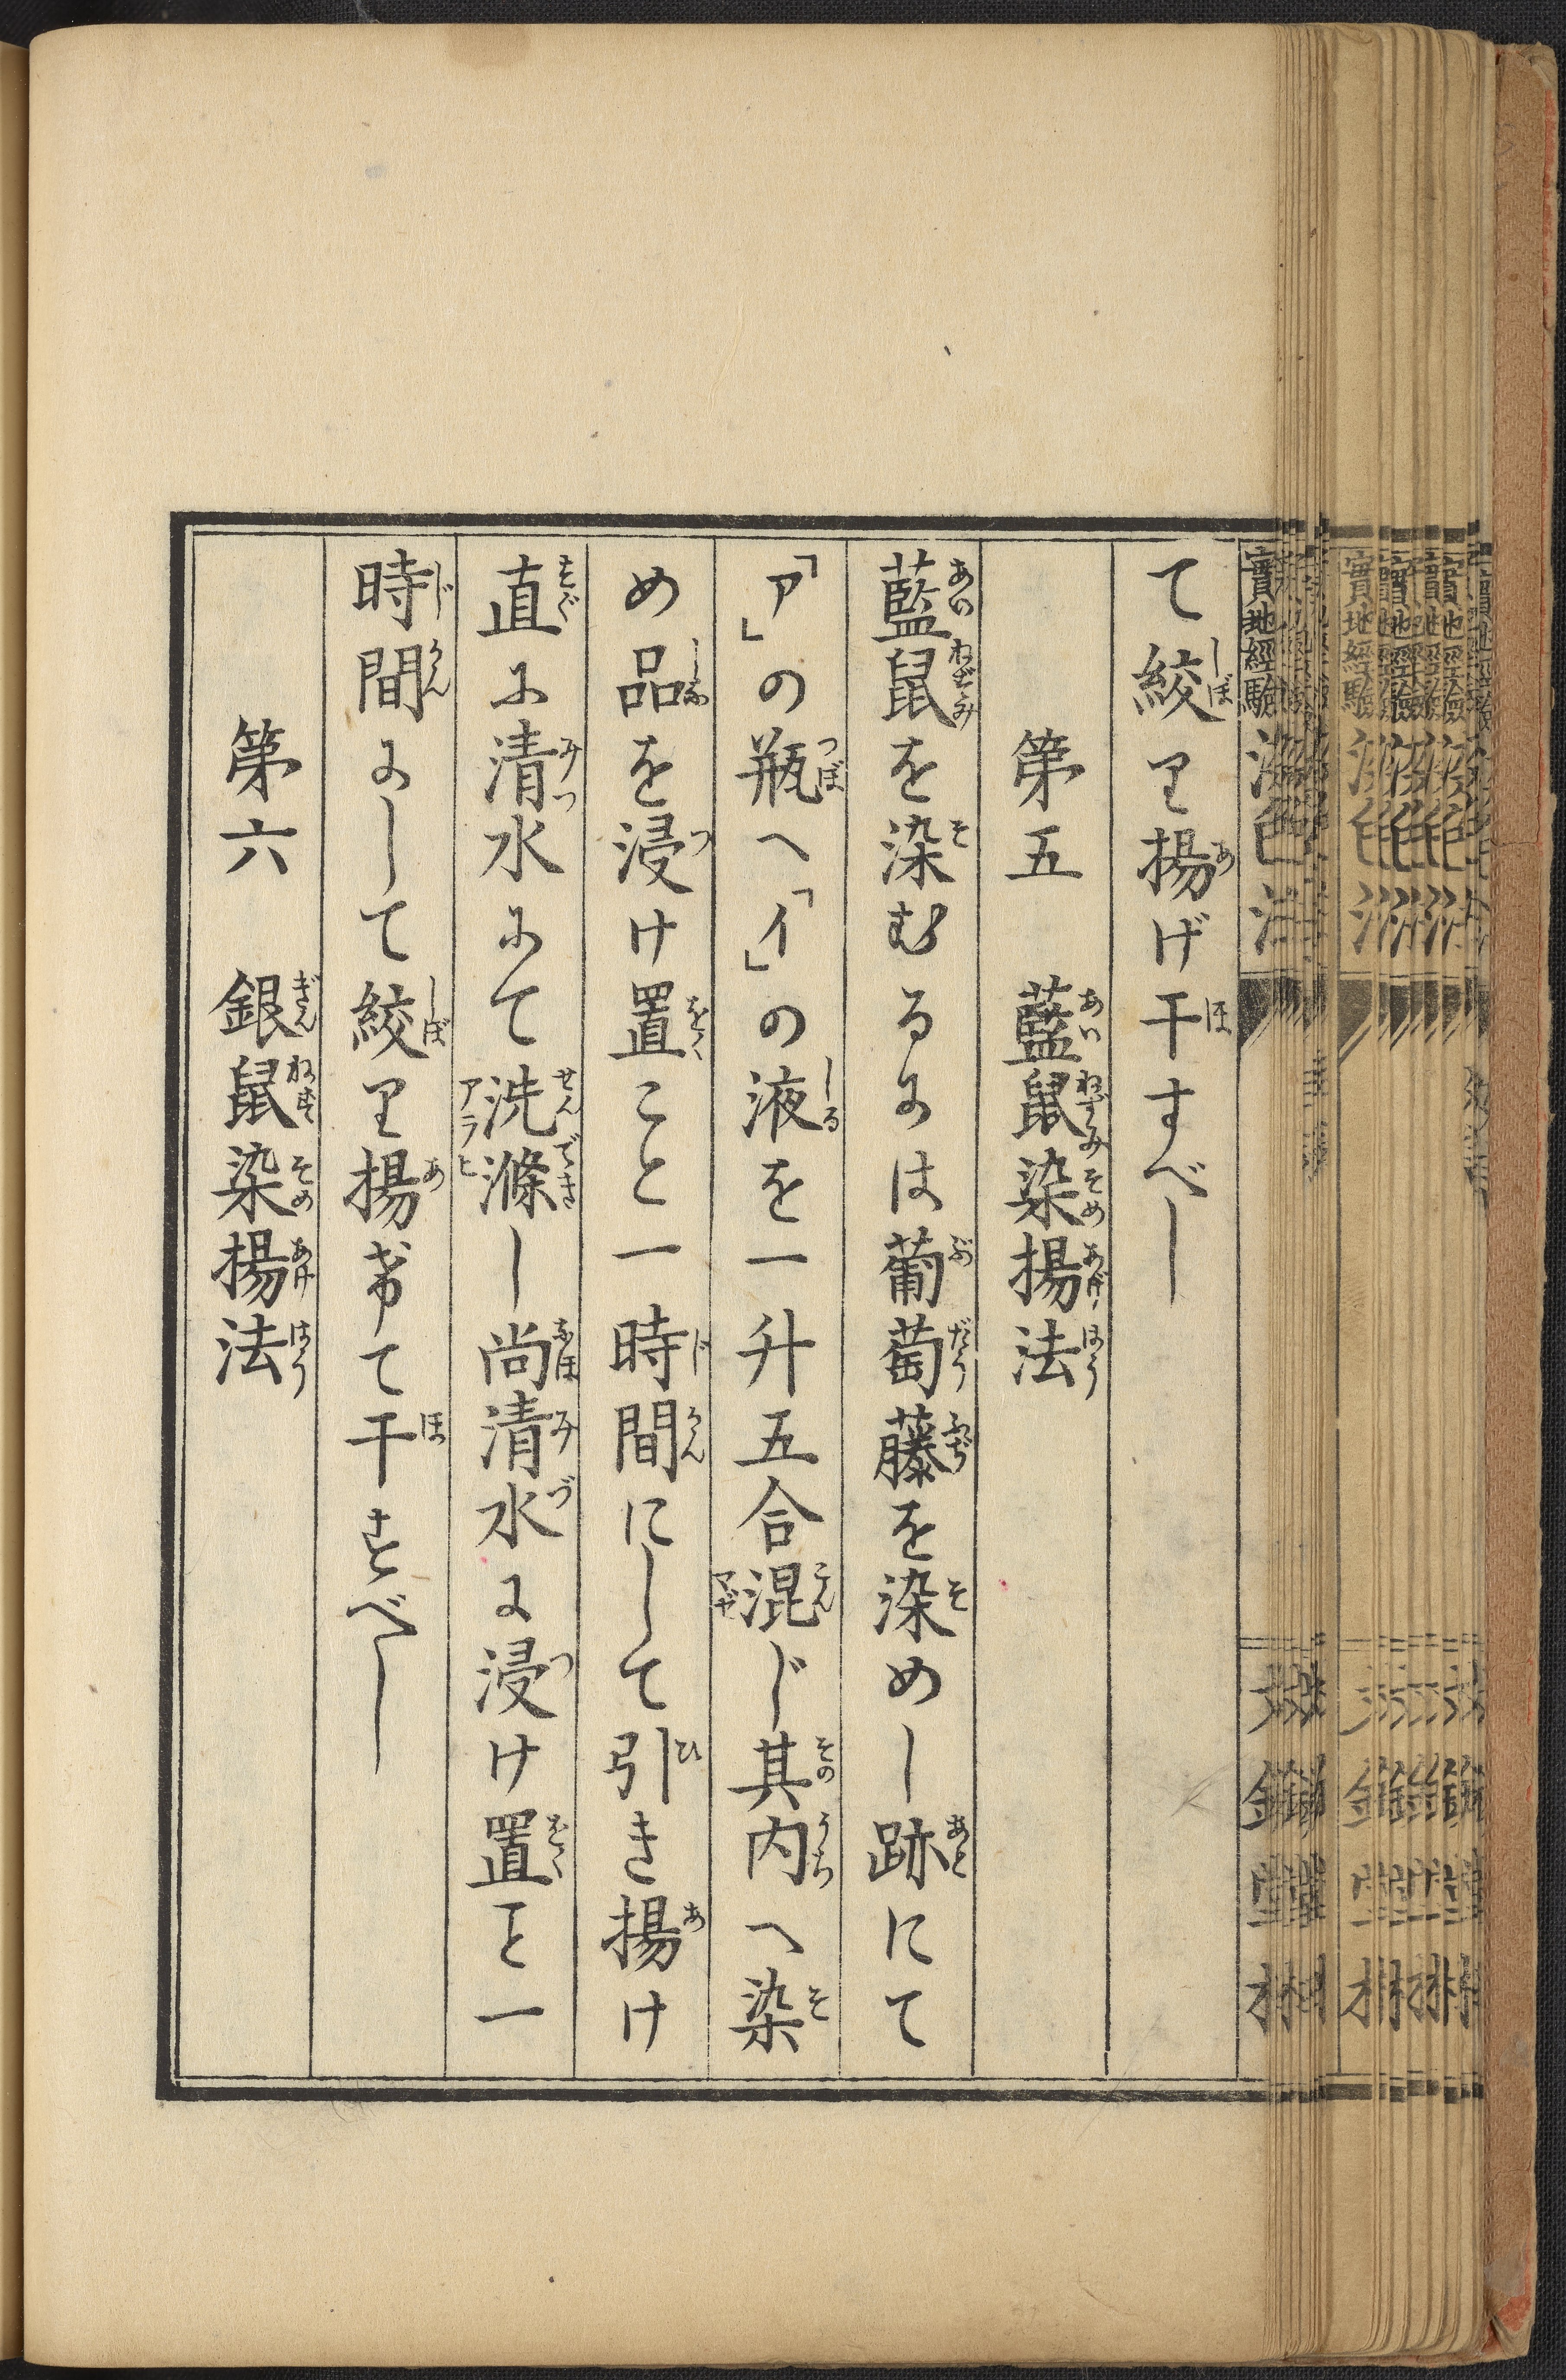 て絞り揚げ干すべし
第五　藍鼠染揚法
藍鼠を染むるには葡萄藤を染めし跡にて
「ア」の瓶へ「イ」の液を一升五合混じ其内へ染
め品を浸け置こと一時間にして引き揚け
直に清水にて洗滌し尚清水に浸け置こと一
時間にして絞り揚げて干すべし
第六　銀鼠染揚法
實地經驗